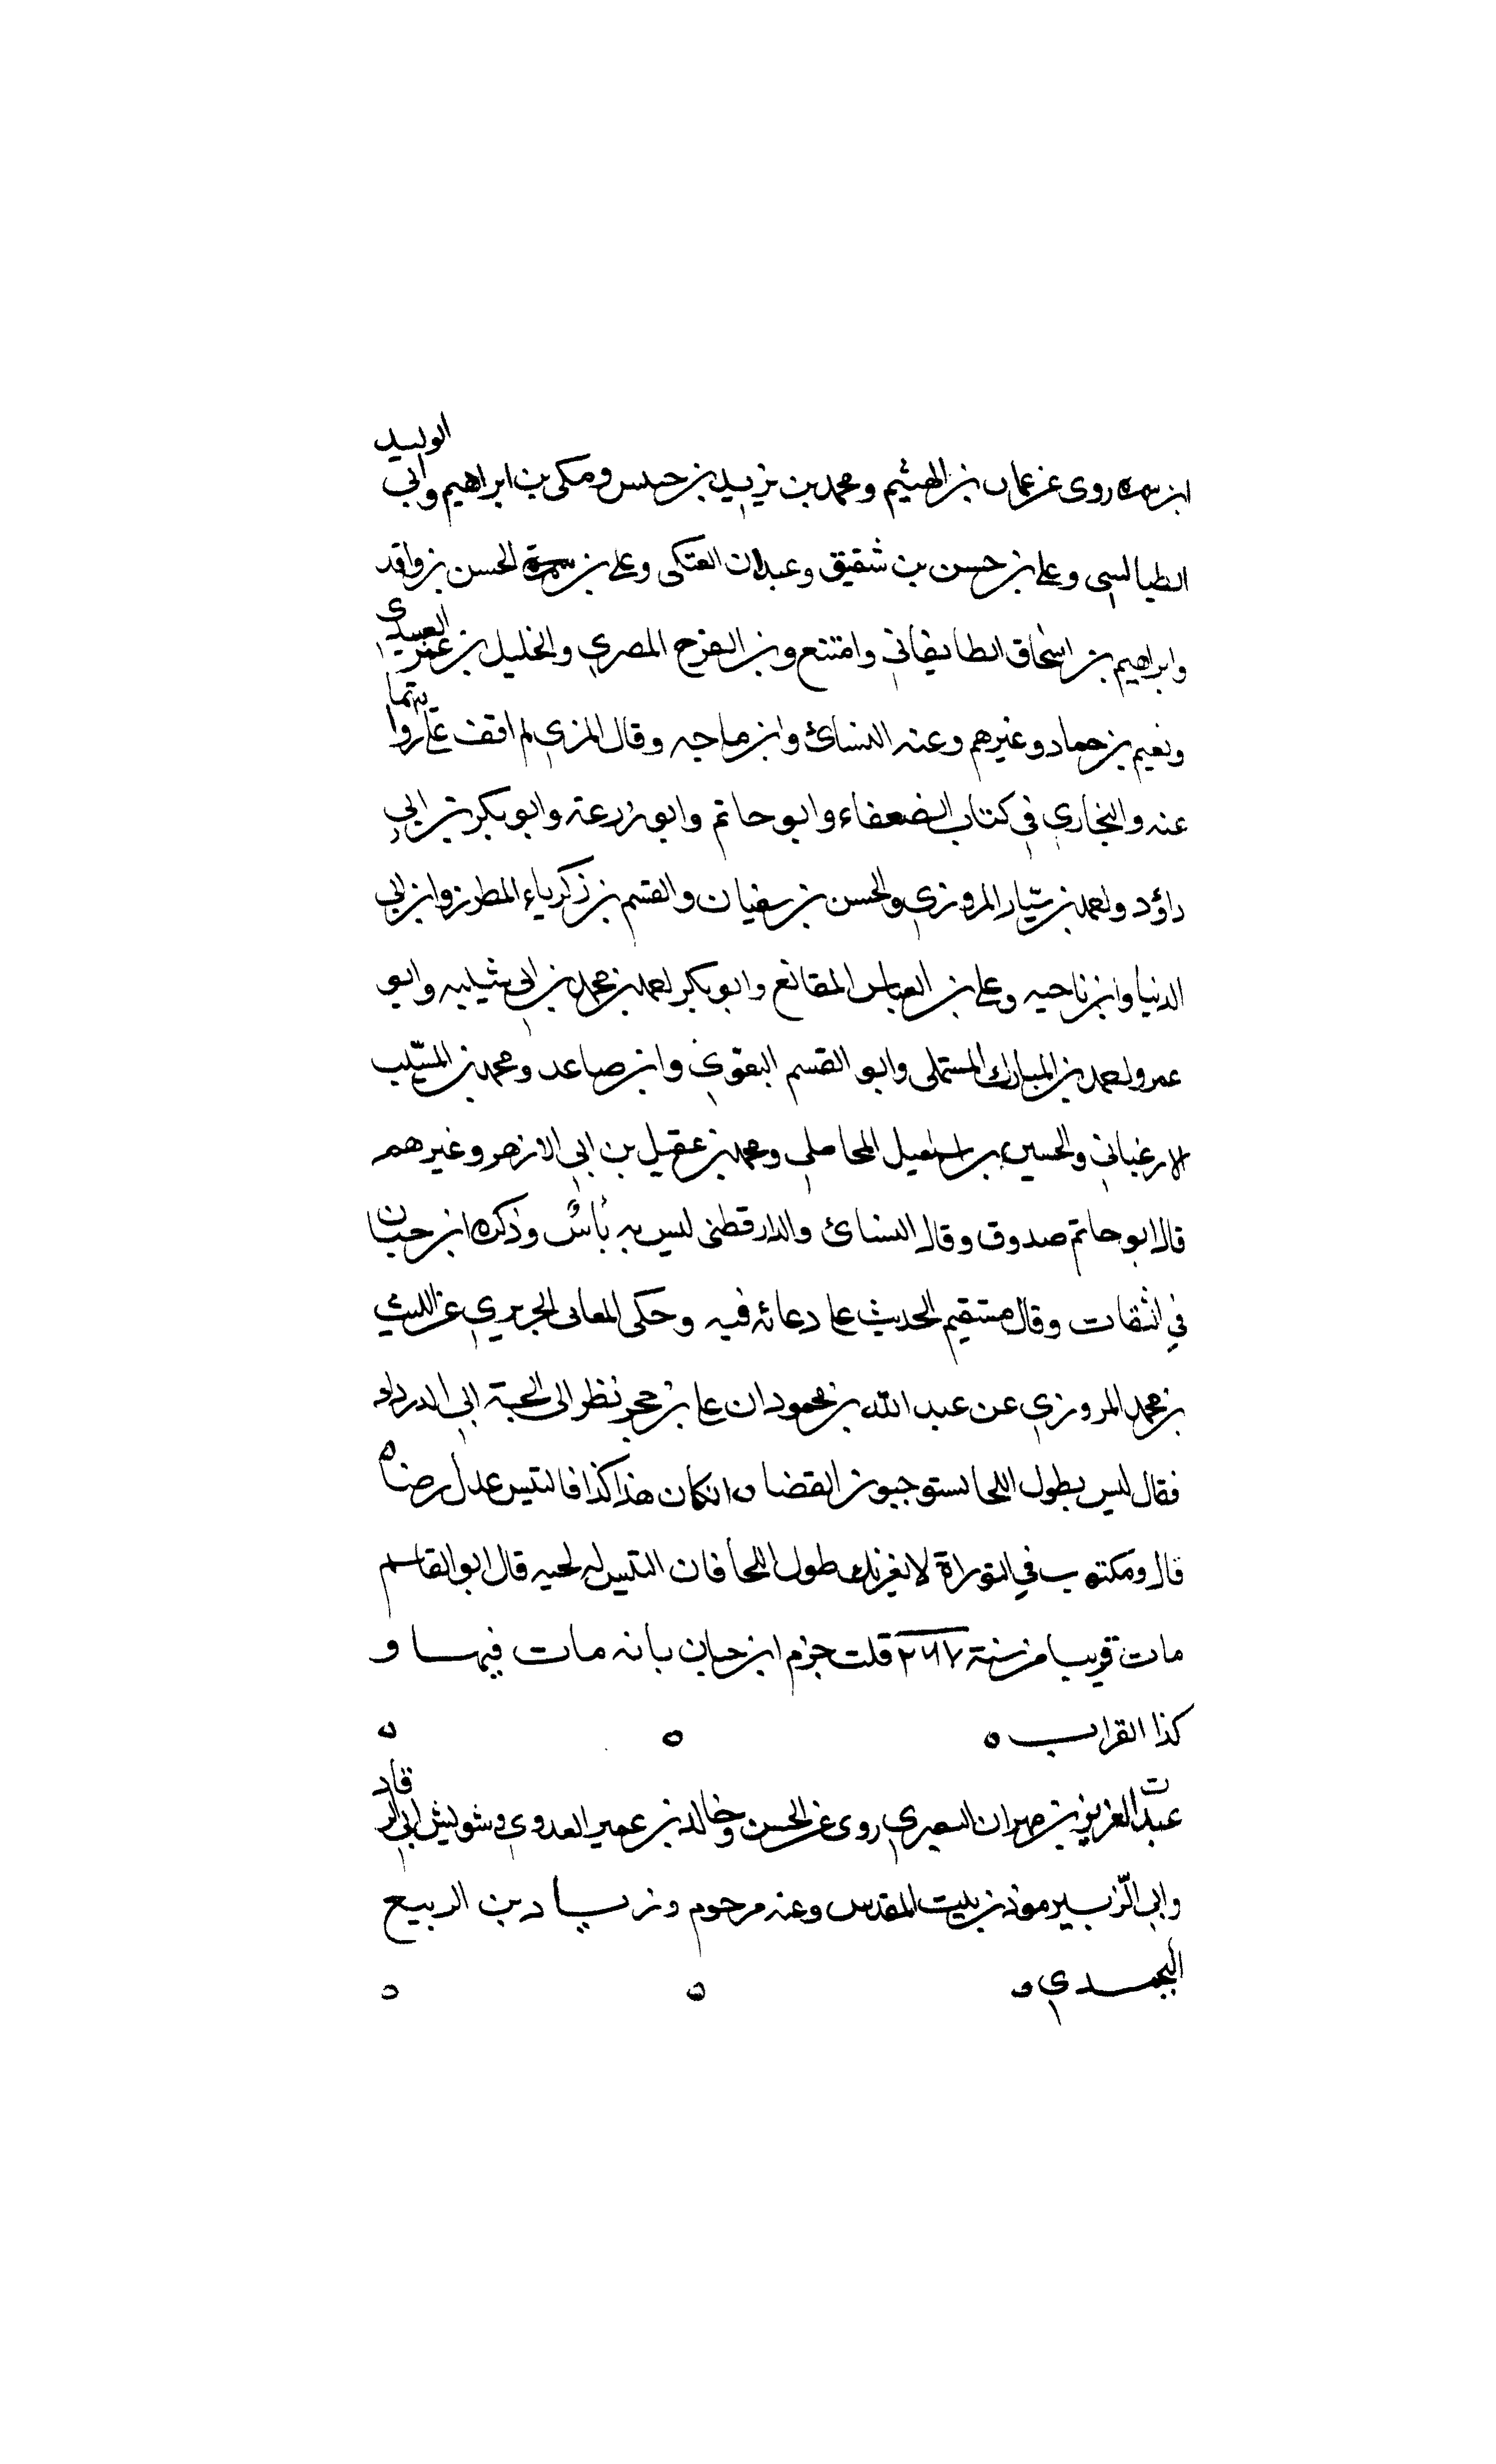 ابن مرة روى عن عمان بن الهيثم ومحمد بن يزيد بن خنيس ومكى بن ابراهيم وابي الوليد
الطيالسي وعلي بن حسن بن شقيق وعبدان العتكى وعلي بن الحسن بن واقد
وابراهيم بن اسحاق الطايقاني واصبغ بن الفرج المصري والخليل بن عمر العبدي
ونعيم بن حماد وغيرهم وعنه النسائ وابن ماجه وقال المزي لم اقف على روايتهما
عنه والبخاري في كتاب الضعفاء وابو حاتم وابو زرعة وابو بكر بن ابي
داؤد واحمد بن سيار المروزي والحسن بن سفيان والقسم بن زكرياء المطرز وابن ابي
الدنيا وابن ناجيه وعلي بن العباس المقانع وابو بكر احمد بن محمد بن ابي شيبه وابو
عمرو احمد بن المبارك المستملى وابو القسم البغوي وابن صاعد ومحمد بن المسيب
الارغياني والحسين بن اسمعيل المحاملي ومحمد بن عقيل بن ابي الازهر وغيرهم
قال ابو حاتم صدوق وقال النسائ والدارقطنى ليس به بأس وذكره ابن حبان
في الثقات وقال مستقيم الحديث على دعائه فيه وحكى المعافى الجريري عن الليث
بن محمد المروزي عن عبد الله بن محمود ان علي بن حجر نظر الى لحية ابي الدرداء
فقال ليس بطول اللحا تستوجبون القضا ان كان هذا كذا فالتيس عدل رضا ه
قال ومكتوب في التوراة لا يغرنك طول اللحا فان التيس له لحيه قال ابو القاسم
مات قريبا من سنة ٢٦٧ قلت جزم ابن حبان بانه مات فيها و
كذا القراب ه ه ه
ت عبد العزيز بن مهران البصري روى عن الحسن وخالد بن عمير العدوي وشويش ابي الرقاد
وابي الزبير موذن بيت المقدس وعنه مرحوم وزياد بن الربيع
اليحمدي ه ه ه